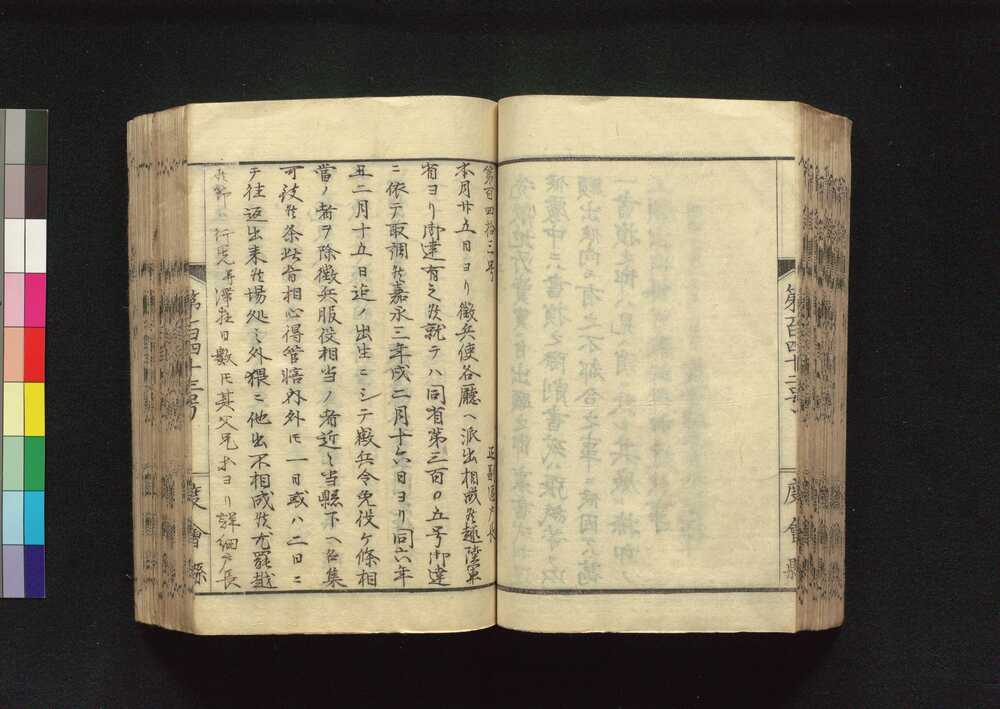 第百四十二号
度會縣
第百四拾三号
正副区戸長
本月廿五日ヨリ徴兵使各廳ヘ派出相成候趣陸軍
省ヨリ御達有之候就テハ同省第三百〇五号御達
ニ依テ取調候嘉永三年戌二月十六日ヨリ同六年
丑二月十五日迄ノ出生ニシテ徴兵令免役ケ條相
當ノ者ヲ除徴兵服役相当ノ者近々当縣下ヘ召集
可致候条此旨相心得管轄内外ﾄﾓ一日或ハ二日ニ
テ往返出来候場処之外猥ニ他出不相成候尤罷越
候節ハ行先并滞在日數ﾄﾓ其父兄ヨリ詳細戸長
第百四十三号
度會縣